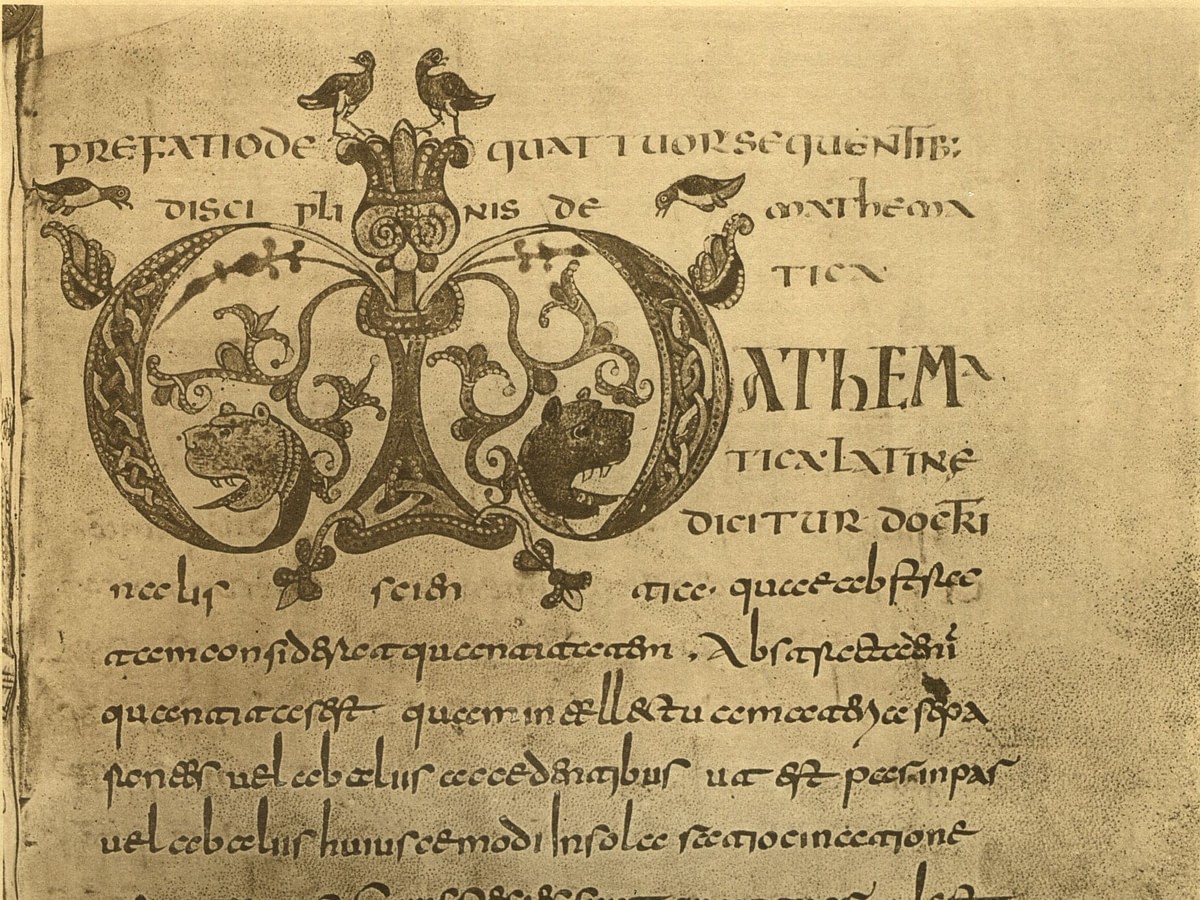 PREFATIO DE QUATTUOR SEQUENTIB:
DISCIPLINIS DE MATHEMA
TICA
MATHEMA
TICA·LATINE
DICITUR DOCTRI
nalis scientia· quae abstrac
tam considerat quantitatem . Abstracta enī
quantitas est quam intellectu a materia sepa
rantes vel ab aliis accidentibus ut est par inpar
vel ab aliis huiuscemodi In sola ratiocinatione